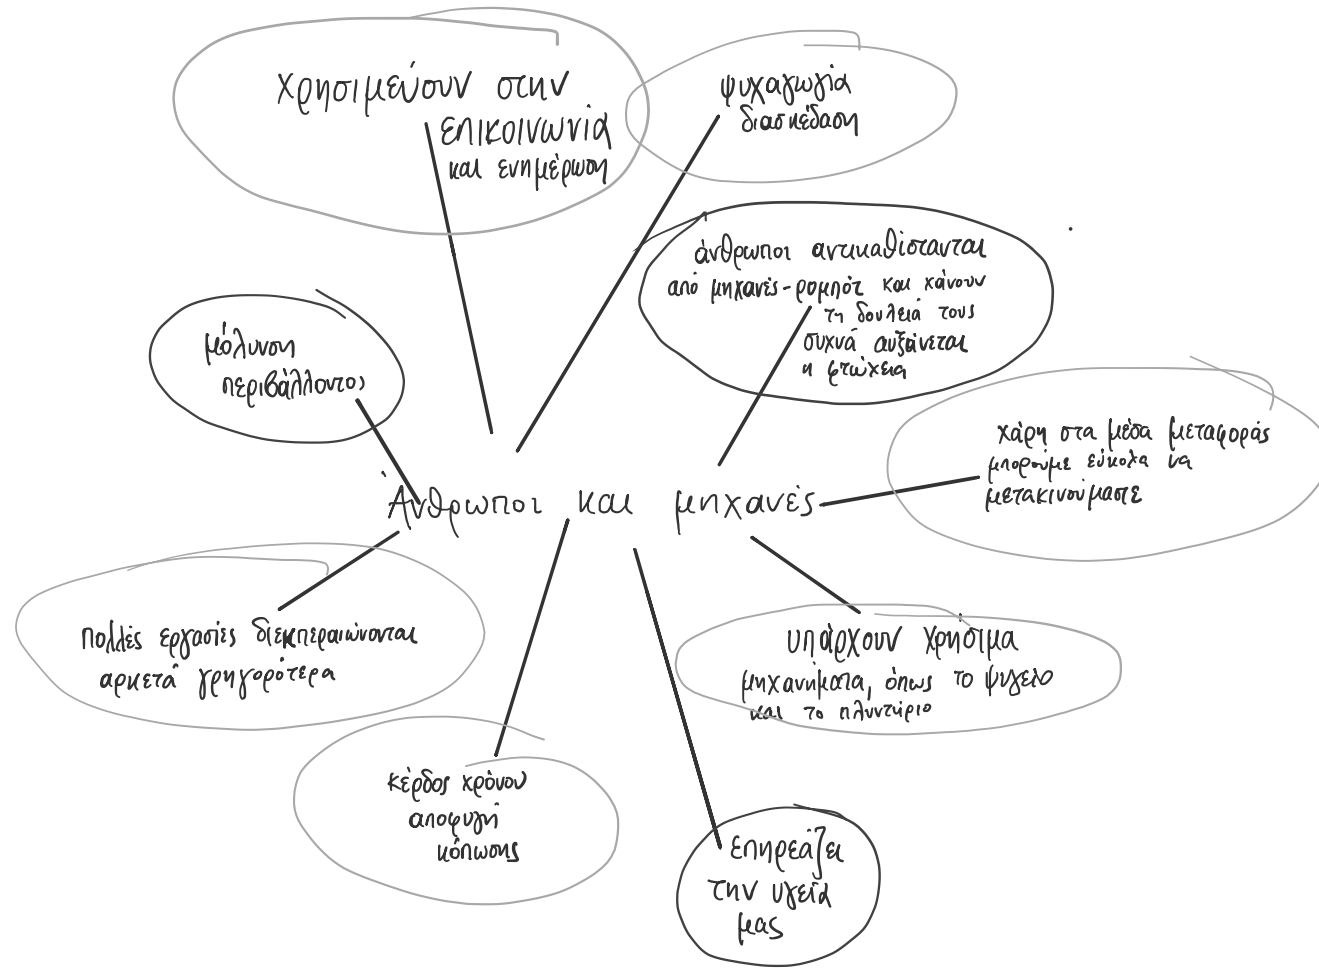 χρησιμεύουν στην
επικοινωνία
και ενημέρωση
ψυχαγωγία
διασκέδαση
άνθρωποι αντικαθίστανται
από μηχανές-ρομπότ και χάνουν
τη δουλειά τους
συχνά αυξάνεται
η φτώχεια
μόλυνση
περιβάλλοντος
χάρη στα μέσα μεταφοράς
μπορούμε εύκολα να
μετακινούμαστε
Άνθρωποι και μηχανές
πολλές εργασίες διεκπεραιώνονται
αρκετά γρηγορότερα
υπάρχουν χρήσιμα
μηχανήματα, όπως το ψυγείο
και το πλυντήριο
κέρδος χρόνου
αποφυγή
κόπωσης
επηρεάζει
την υγεία
μας